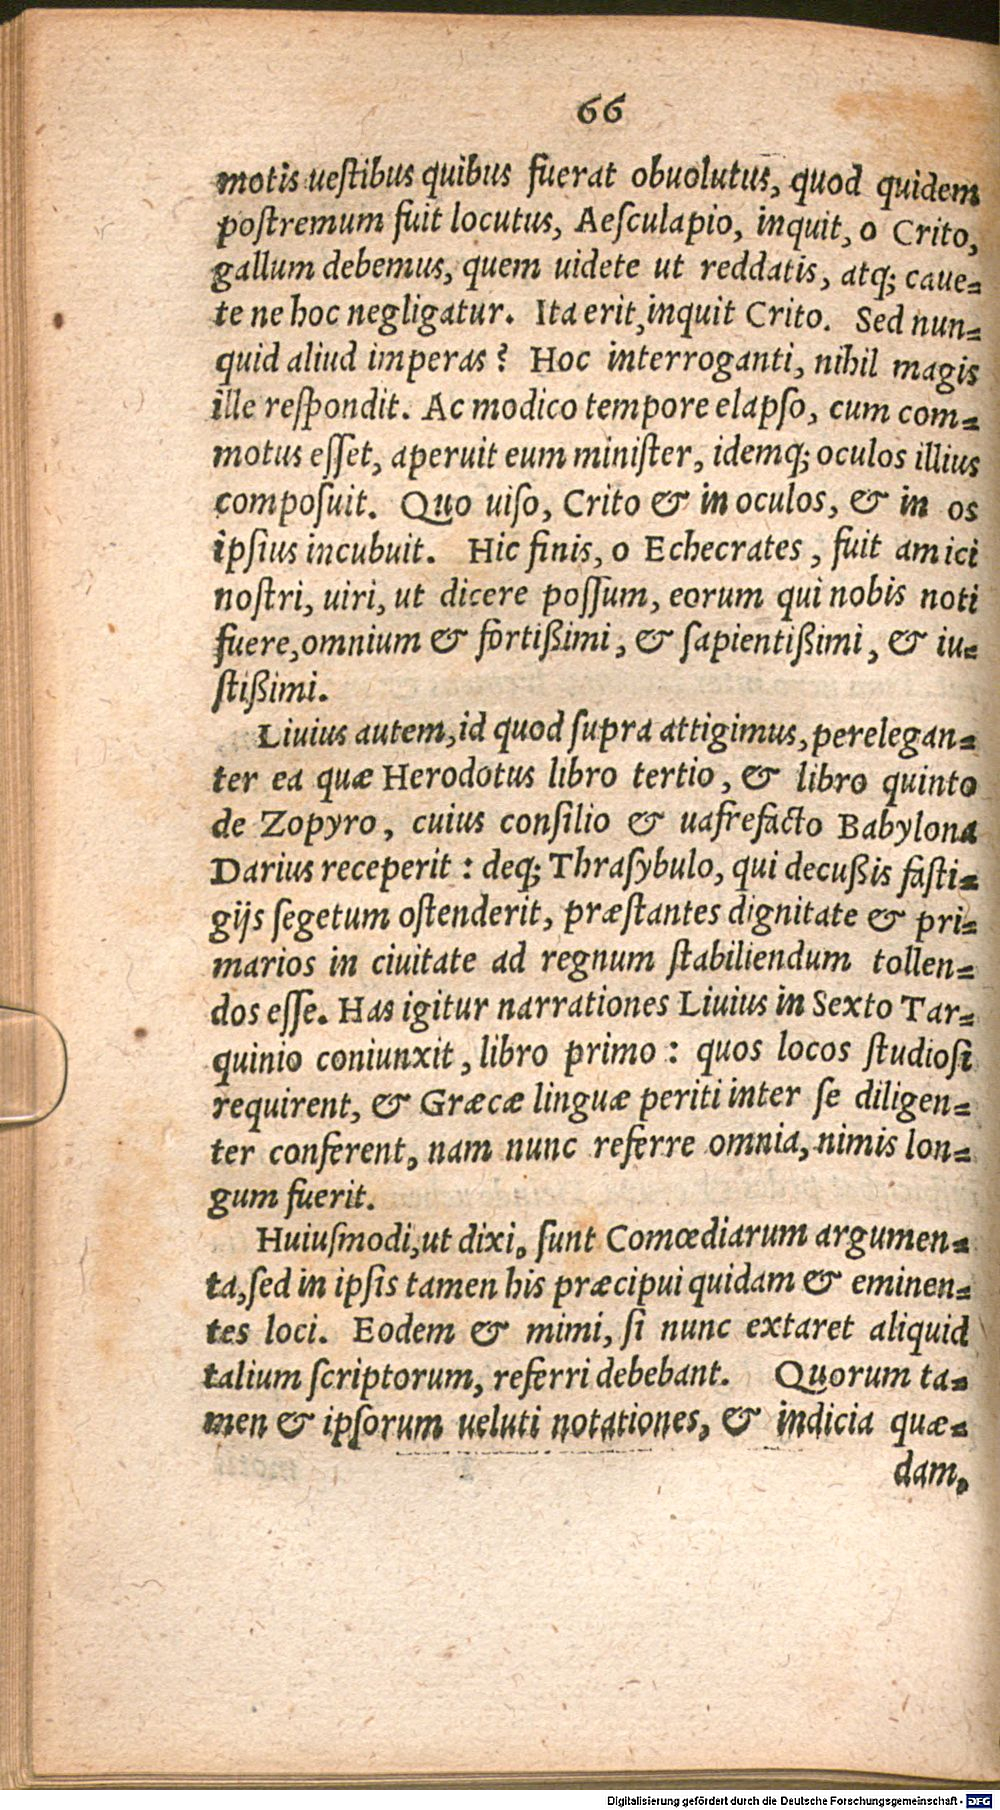 66
motis ueſtibus quibus fuerat obuolutus, quod quidem
poſtremum fuit locutus, Aeſculapio, inquit, o Crito,
gallum debemus, quem uidete ut reddatis, atq; caue⸗
te ne hoc negligatur. Ita erit, inquit Crito. Sed nun⸗
quid aliud imperas? Hoc interroganti, nihil magis
ille reſpondit. Ac modico tempore elapſo, cum com⸗
motus eſſet, aperuit eum miniſter, idemq; oculos illius
compoſuit. Quo uiſo, Crito & in oculos, & in os
ipſius incubuit. Hic finis, o Echecrates, fuit amici
noſtri, uiri, ut dicere poſſum, eorum qui nobis noti
fuere, omnium & fortißimi, & ſapientißimi, & iu⸗
ſtißimi.
Liuius autem, id quod ſupra attigimus, perelegan⸗
ter ea quæ Herodotus libro tertio, & libro quinto
de Zopyro, cuius conſilio & uafrefacto Babylona
Darius receperit: deq; Thraſybulo, qui decußis faſti⸗
gijs ſegetum oſtenderit, præſtantes dignitate & pri⸗
marios in ciuitate ad regnum ſtabiliendum tollen⸗
dos eſſe. Has igitur narrationes Liuius in Sexto Tar⸗
quinio coniunxit, libro primo: quos locos ſtudioſi
requirent, & Græcæ linguæ periti inter ſe diligen⸗
ter conferent, nam nunc referre omnia, nimis lon⸗
gum fuerit.
Huiuſmodi, ut dixi, ſunt Comœdiarum argumen⸗
ta, ſed in ipſis tamen his præcipui quidam & eminen⸗
tes loci. Eodem & mimi, ſi nunc extaret aliquid
talium ſcriptorum, referri debebant. Quorum ta⸗
men & ipſorum ueluti notationes, & indicia quæ⸗
dam,
Digitalisierung gefördert durch die Deutsche Forschungsgemeinschaft - DFG